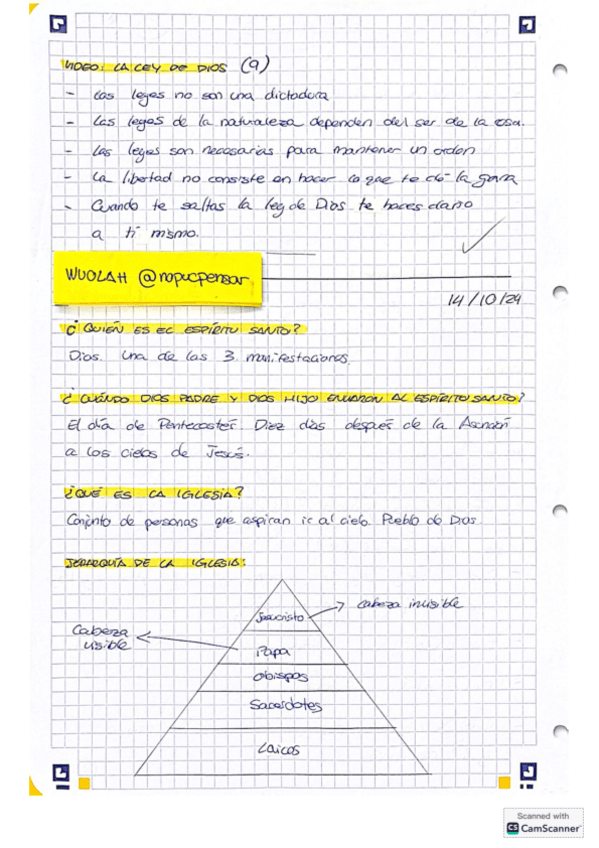 VIDEO: LA LEY DE DIOS (9)
- Las leyes no son una dictadura
- Las leyes de la naturaleza dependen del ser de la cosa.
- Las leyes son necesarias para mantener un orden
- La libertad no consiste en hacer lo que te dé la gana
- Cuando te saltas la ley de Dios te haces daño
a ti mismo.
WUOLAH @nopucpensar
14/10/24
¿QUIÉN ES EL ESPÍRITU SANTO?
Dios. Una de las 3 manifestaciones.
¿CUÁNDO DIOS PADRE Y DIOS HIJO ENVIARON AL ESPÍRITU SANTO?
El día de Pentecostés. Diez días después de la Ascensión
a los cielos de Jesús.
¿QUÉ ES LA IGLESIA?
Conjunto de personas que aspiran ir al cielo. Pueblo de Dios.
JERARQUÍA DE LA IGLESIA:
Jesucristo
cabeza invisible
Cabeza
visible
Papa
Obispos
Sacerdotes
Laicos
Scanned with
CS CamScanner